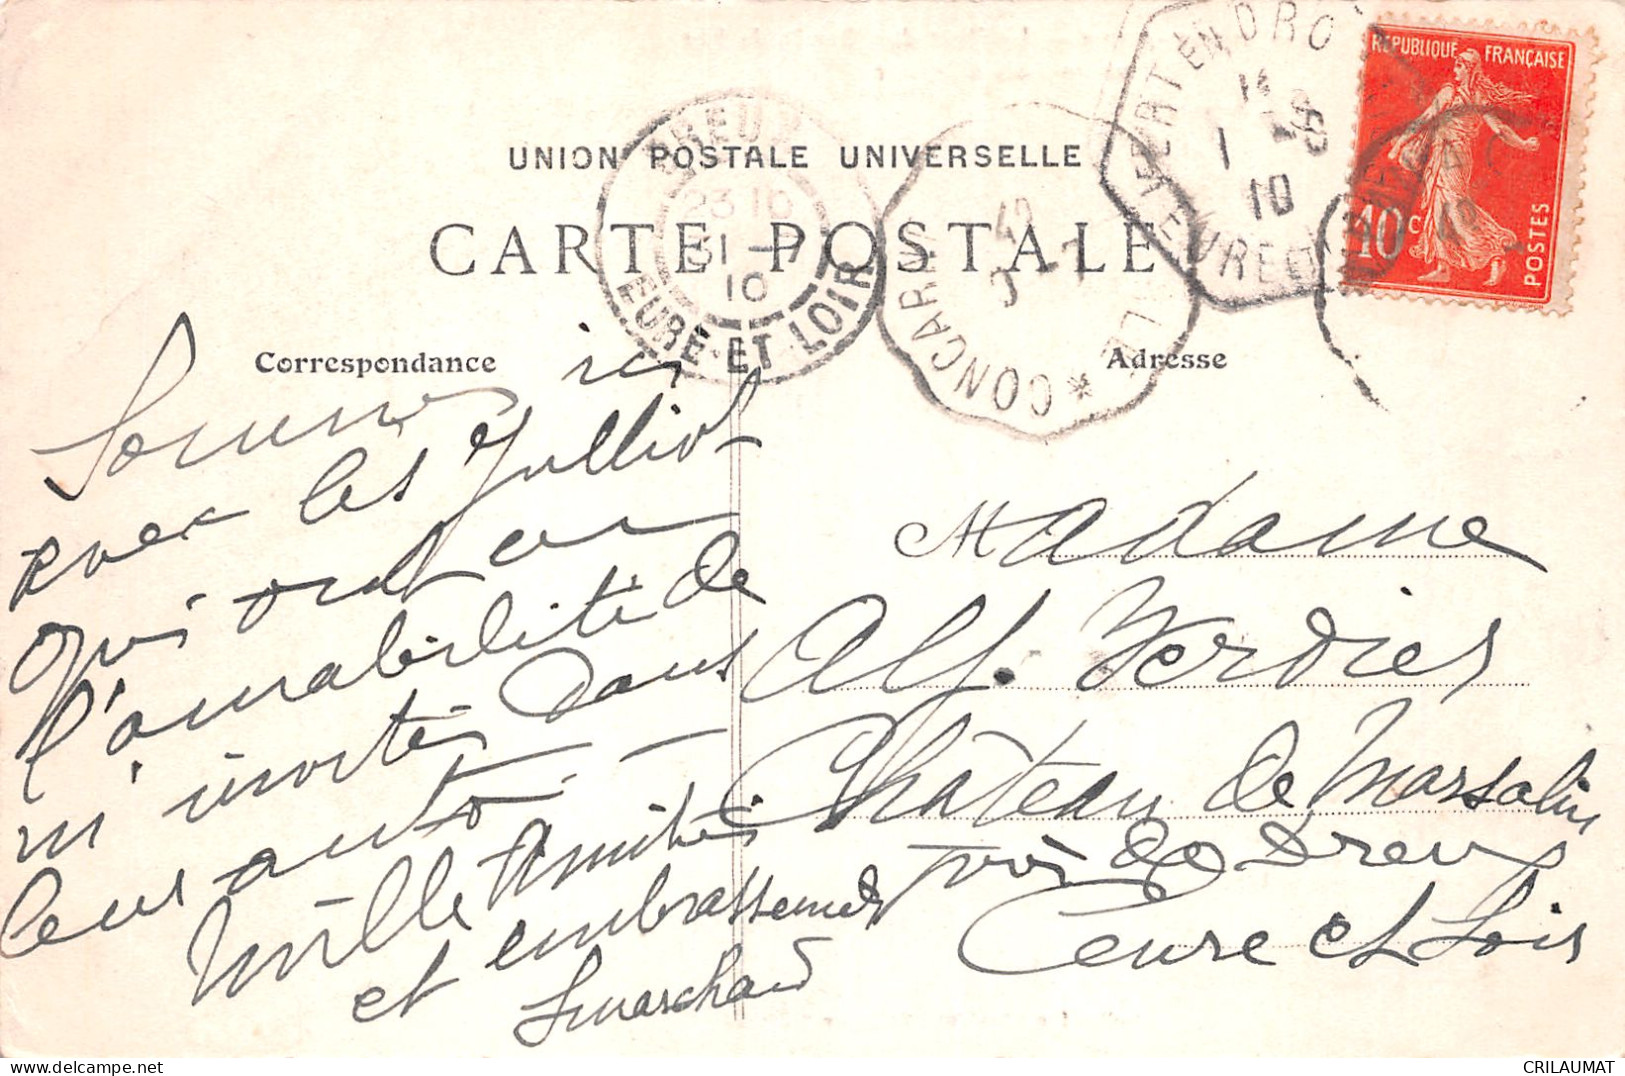 UNION POSTALE UNIVERSELLE
CARTE POSTALE
Correspondance
Adresse
RÉPUBLIQUE FRANÇAISE
10c
POSTES
DREUX
23 10
31 -7
10
EURE-ET-LOIR
CONCARN
VERT EN DRO
1
10
EURE
Sommes ici
avec les Julliot
qui ont eu
l'amabilité de
m'inviter dans
leur auto. —
Mille Amitiés
et embrassements
Madame
Alf. Verdier
Château de Marsalin
près de Dreux
Eure et Loir
CRILAUMAT